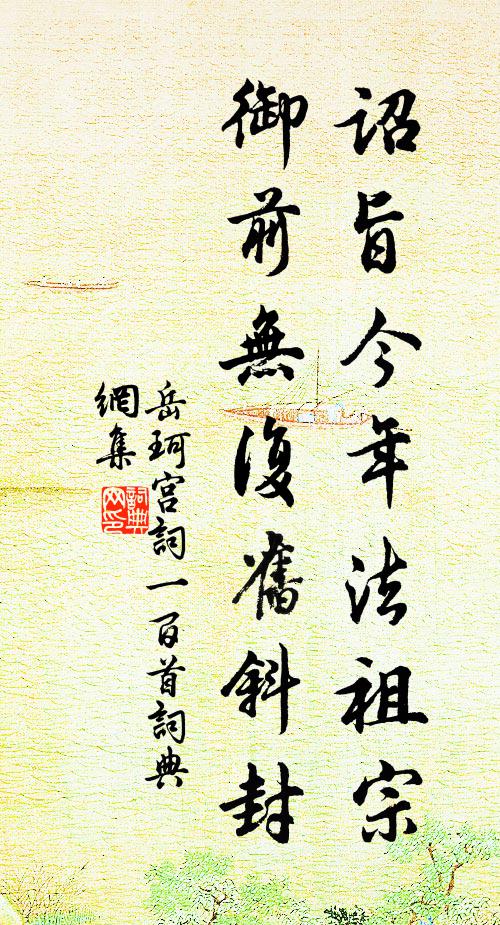 詔旨今年法祖宗
御前無復舊斜封
岳珂宮詞一百首詞典
網集
詞典
网印